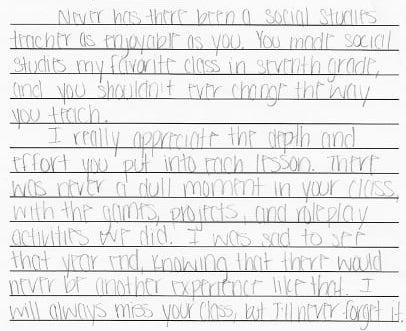 Never has there been a social studies
teacher as enjoyable as you. You made social
studies my favorite class in seventh grade,
and you shouldn't ever change the way
you teach.
I really appreciate the depth and
effort you put into each lesson. There
was never a dull moment in your class,
with the games, projects, and roleplay
activities we did. I was sad to see
that year end, knowing that there would
never be another experience like that. I
will always miss your class, but I'll never forget it.